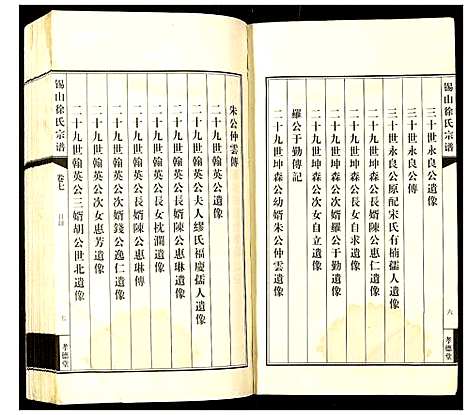 錫山徐氏宗谱
三十世永良公遺像
三十世永良公傳
三十世永良公原配宋氏有楠孺人遺像
二十九世坤森公長婿陳公惠仁遺像
二十九世坤森公長女自求遺像
二十九世坤森公次婿羅公于勤遺像
羅公于勤傳記
二十九世坤森公次女自立遺像
二十九世坤森公幼婿朱公仲雲遺像
六
孝德堂
朱公仲雲傳
二十九世翰英公遺像
二十九世翰英公夫人繆氏福慶孺人遺像
二十九世翰英公長婿陳公惠琳遺像
二十九世翰英公長女枕瀾遺像
二十九世翰英公長婿陳公惠琳傳
二十九世翰英公次婿錢公逸仁遺像
二十九世翰英公次女惠芳遺像
二十九世翰英公三婿胡公世北遺像
錫山徐氏宗谱
卷七
目錄
七
孝德堂